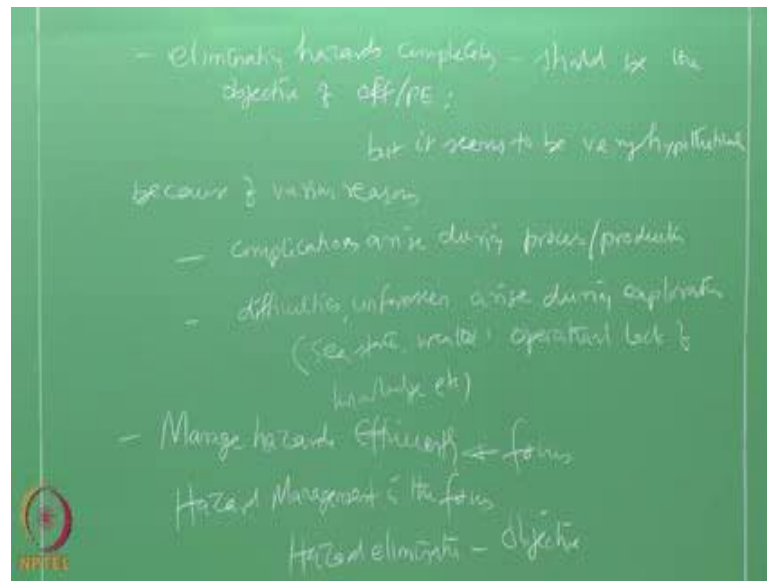 - eliminating hazards completely - should be the
objective of off/PE;
but it seems to be very hypothetical
because of various reasons
- complications arise during process/production
- difficulties, unforseen arise during exploration
(sea state, weather, operational lack of
knowledge etc)
- Manage hazards Efficiently ← focus
Hazard Management is the focus
Hazard elimination - Objective
NPTEL